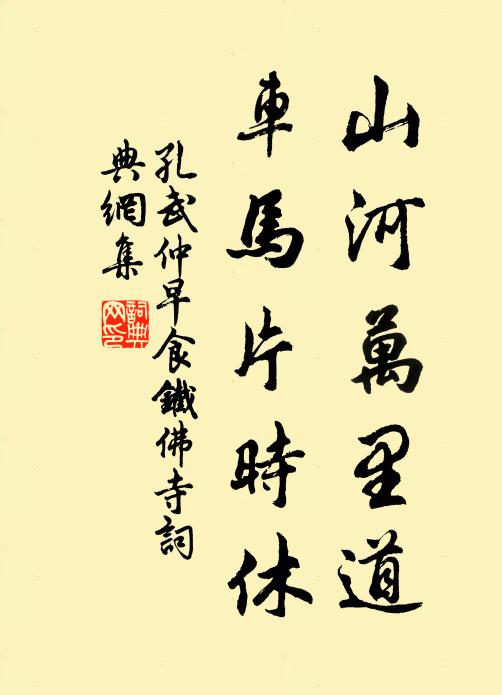 山河萬里道
車馬片時休
孔武仲早食鐵佛寺詞
典網集
詞典網印